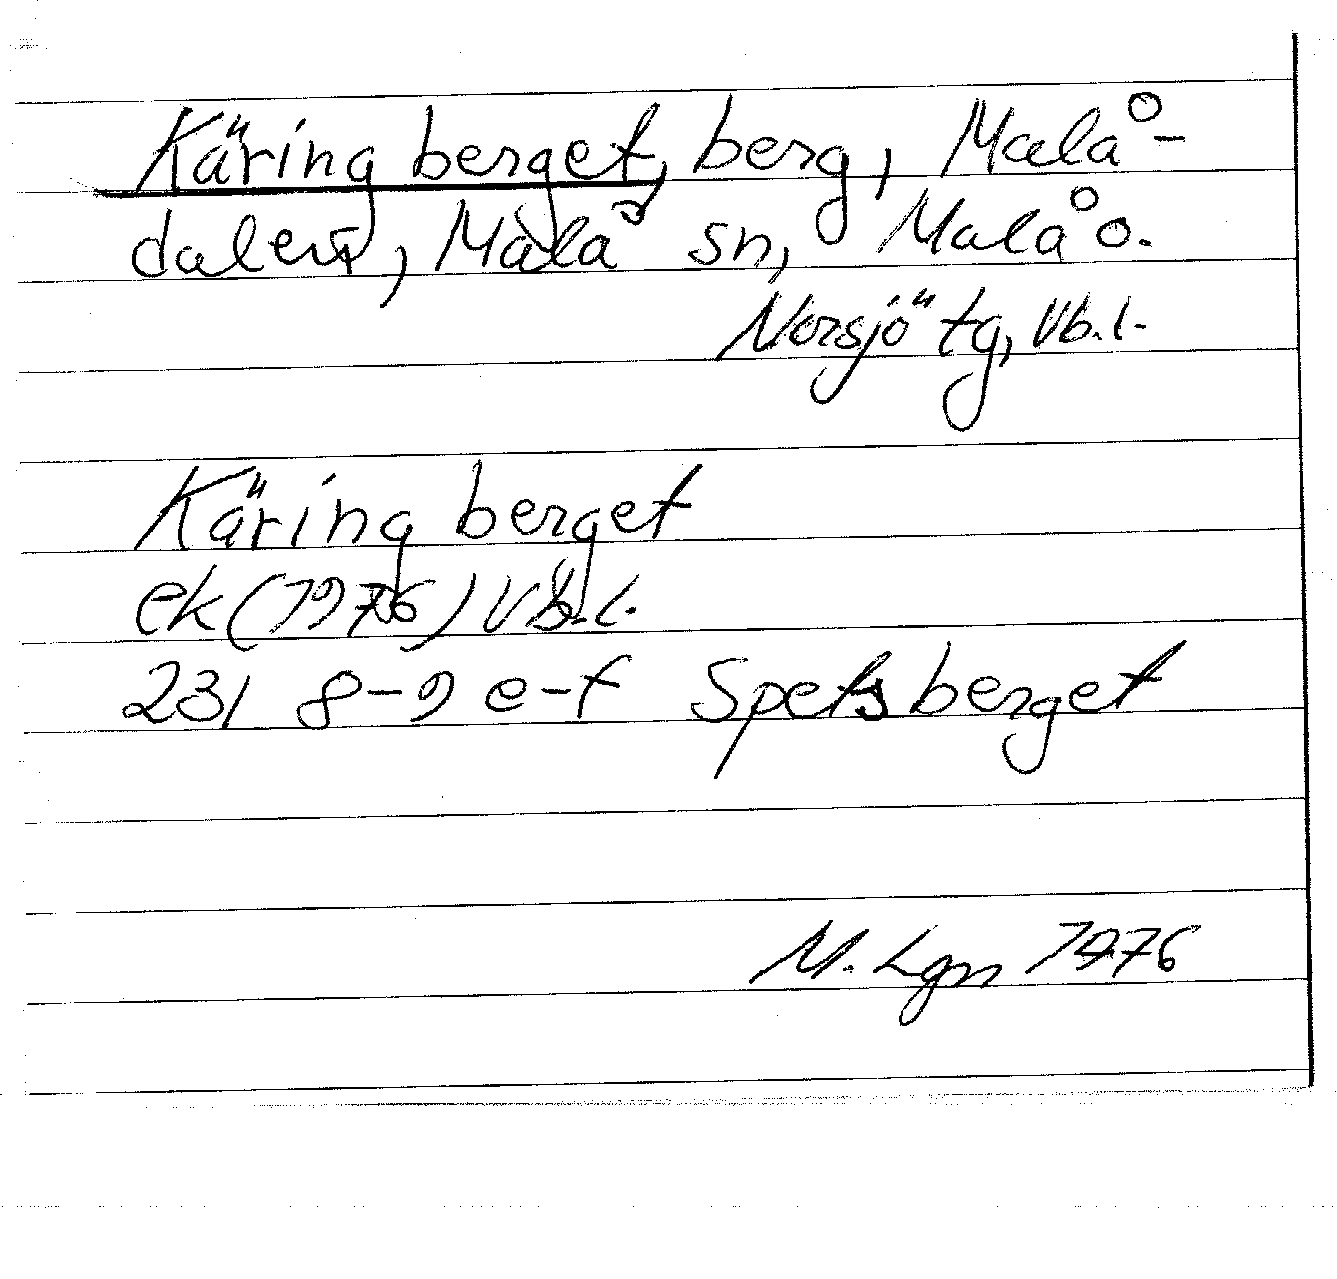 Käringberget, berg, Malå-
dalen, Malå sn, Malå o.
Norsjö tg, Vb.l.
Käringberget
ek (1976) Vb.l.
231 8-9 e-f Spetsberget
M. Lgn 1976